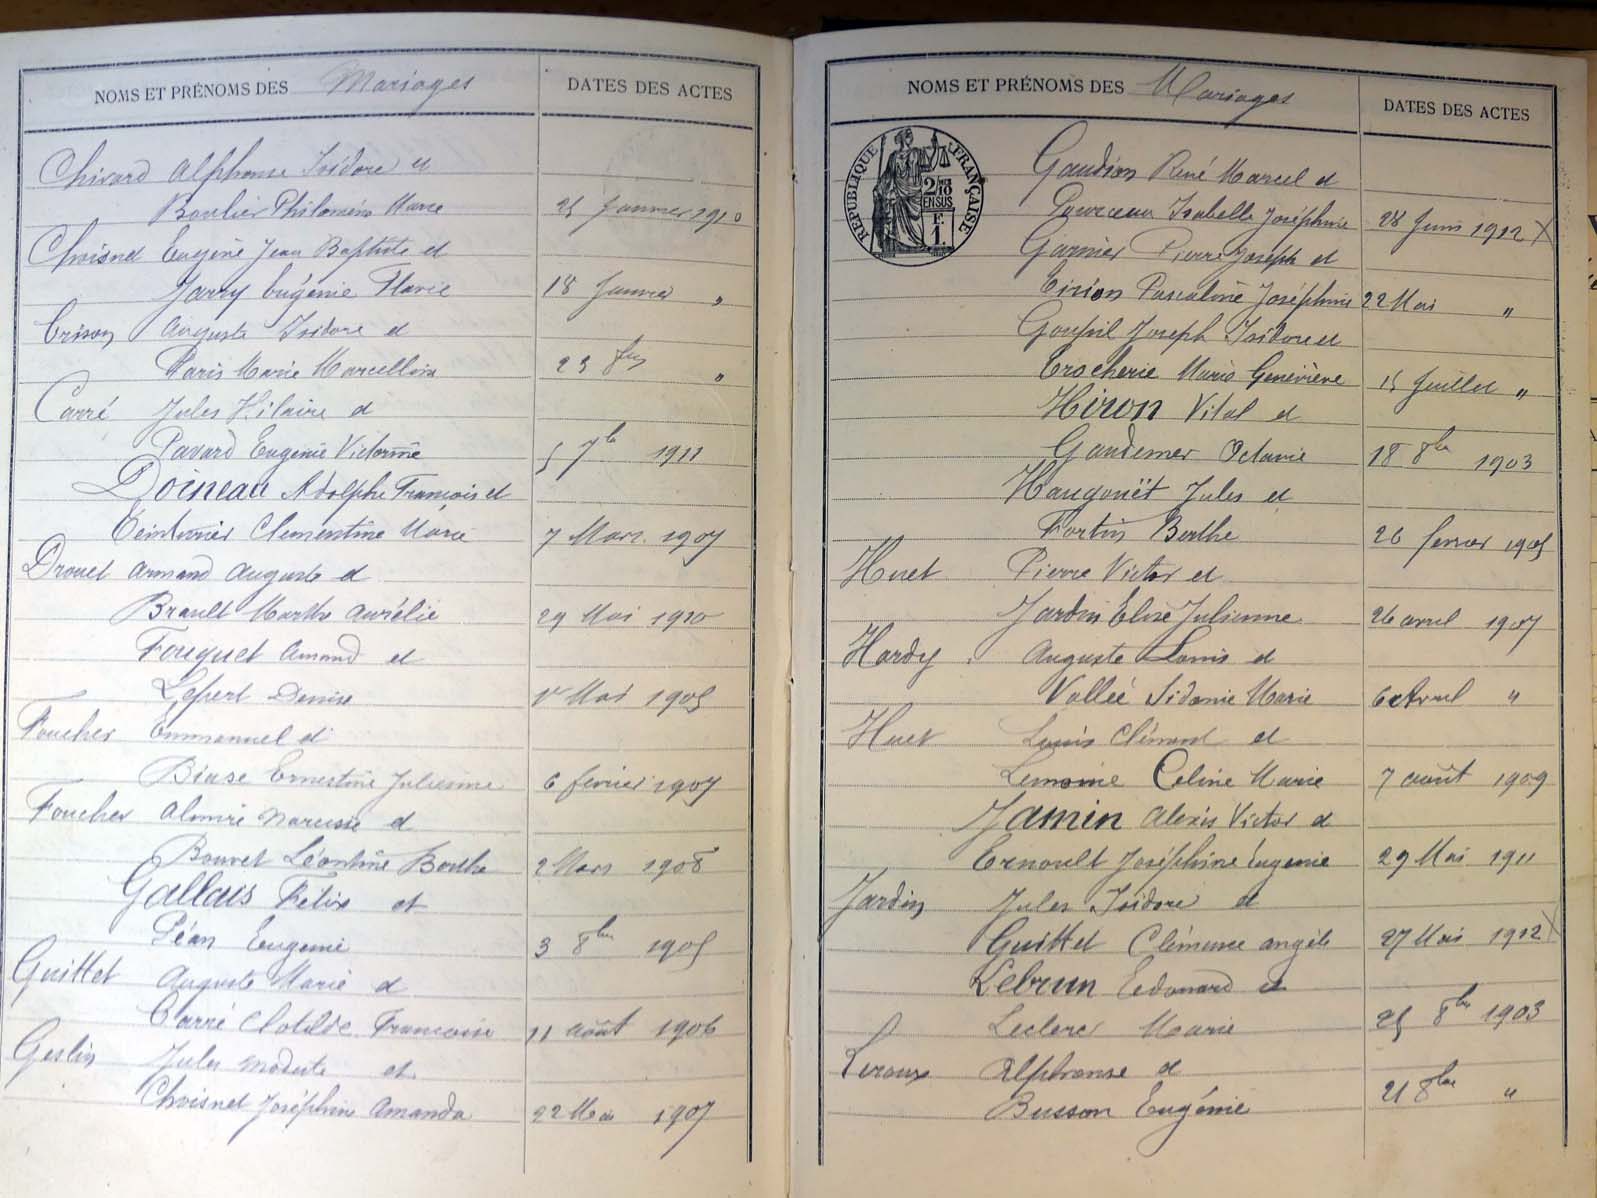 NOMS ET PRÉNOMS DES Mariages DATES DES ACTES
Chivard Alphonse Isidore et
Boulier Philomène Marie 25 Janvier 1910
Choisnet Eugène Jean Baptiste et
Jarry Eugénie Flavie 18 Janvier "
Crison Auguste Isidore et
Paris Marie Marcelline 23 8bre "
Carré Jules Hilaire et
Pavard Eugénie Victorine 5 7bre 1911
Doineau Adolphe François et
Teinturier Clementine Marie 7 Mars 1907
Drouet Armand Auguste et
Brault Marthe Aurélie 29 Mai 1910
Fouquet Amand et
Lepert Denise 1r Mai 1905
Foucher Emmanuel et
Biase Ernestine Julienne 6 fevrier 1907
Foucher Almire Narcisse et
Bouvet Léontine Berthe 2 Mars 1908
Gallais Félix et
Péan Eugenie 3 8bre 1905
Guittet Auguste Marie et
Carré Clotilde Françoise 11 août 1906
Geslin Jules Modeste et
Choisnet Joséphine Amanda 22 Mai 1907
NOMS ET PRÉNOMS DES Mariages DATES DES ACTES
RÉPUBLIQUE FRANÇAISE
2/10
EN SUS
F.
1.
Gaudion René Marcel et
Pourceau Isabelle Joséphine 28 Juin 1912 X
Garnier Pierre Joseph et
Cirion Pascaline Joséphine 22 Mai "
Goupil Joseph Isidore et
Trocherie Marie Geneviève 15 Juillet "
Hiron Vital et
Gandemer Octavie 18 8bre 1903
Haugouët Jules et
Fortin Berthe 26 fevrier 1905
Huet Pierre Victor et
Jardin Elise Julienne 26 avril 1907
Hardy Auguste Louis et
Vallée Sidonie Marie 6 Avril "
Huet Louis Clément et
Lemoine Celine Marie 7 août 1909
Jamin Alexis Victor et
Ernoult Joséphine Eugenie 29 Mai 1911
Jardin Jules Isidore et
Guittet Clémence Angèle 27 Mai 1912 X
Lebrun Edouard et
Leclerc Marie 25 8bre 1903
Leroux Alphonse et
Busson Eugénie 21 8bre "